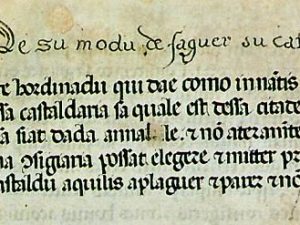 De su modu de faguer su cat
e hordinadu qui dae como innãtis
sa castaldaria sa quale est dessa citade
a siat dada annal le, et nõ ateramẽte
na ꝯsigiaria possat elegere et mitter pr
astaldu aquilis aplaguer et parer et nõ